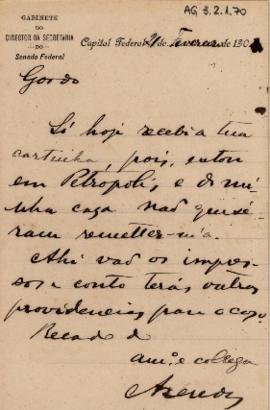 AG, 3.2.1.70
GABINETE
DO
DIRECTOR DA SECRETARIA
DO
Senado Federal
Capital Federal, 21 de Fevereiro de 190
Gordo
Só hoje recebi a tua
cartinha, pois, estou
em Petropolis, e de mi-
nha casa não quizé-
ram remetter-m'a.
Ahi vão os impres-
sos e conto terás outras
providencias para o caso.
Recado do
am.º e collega